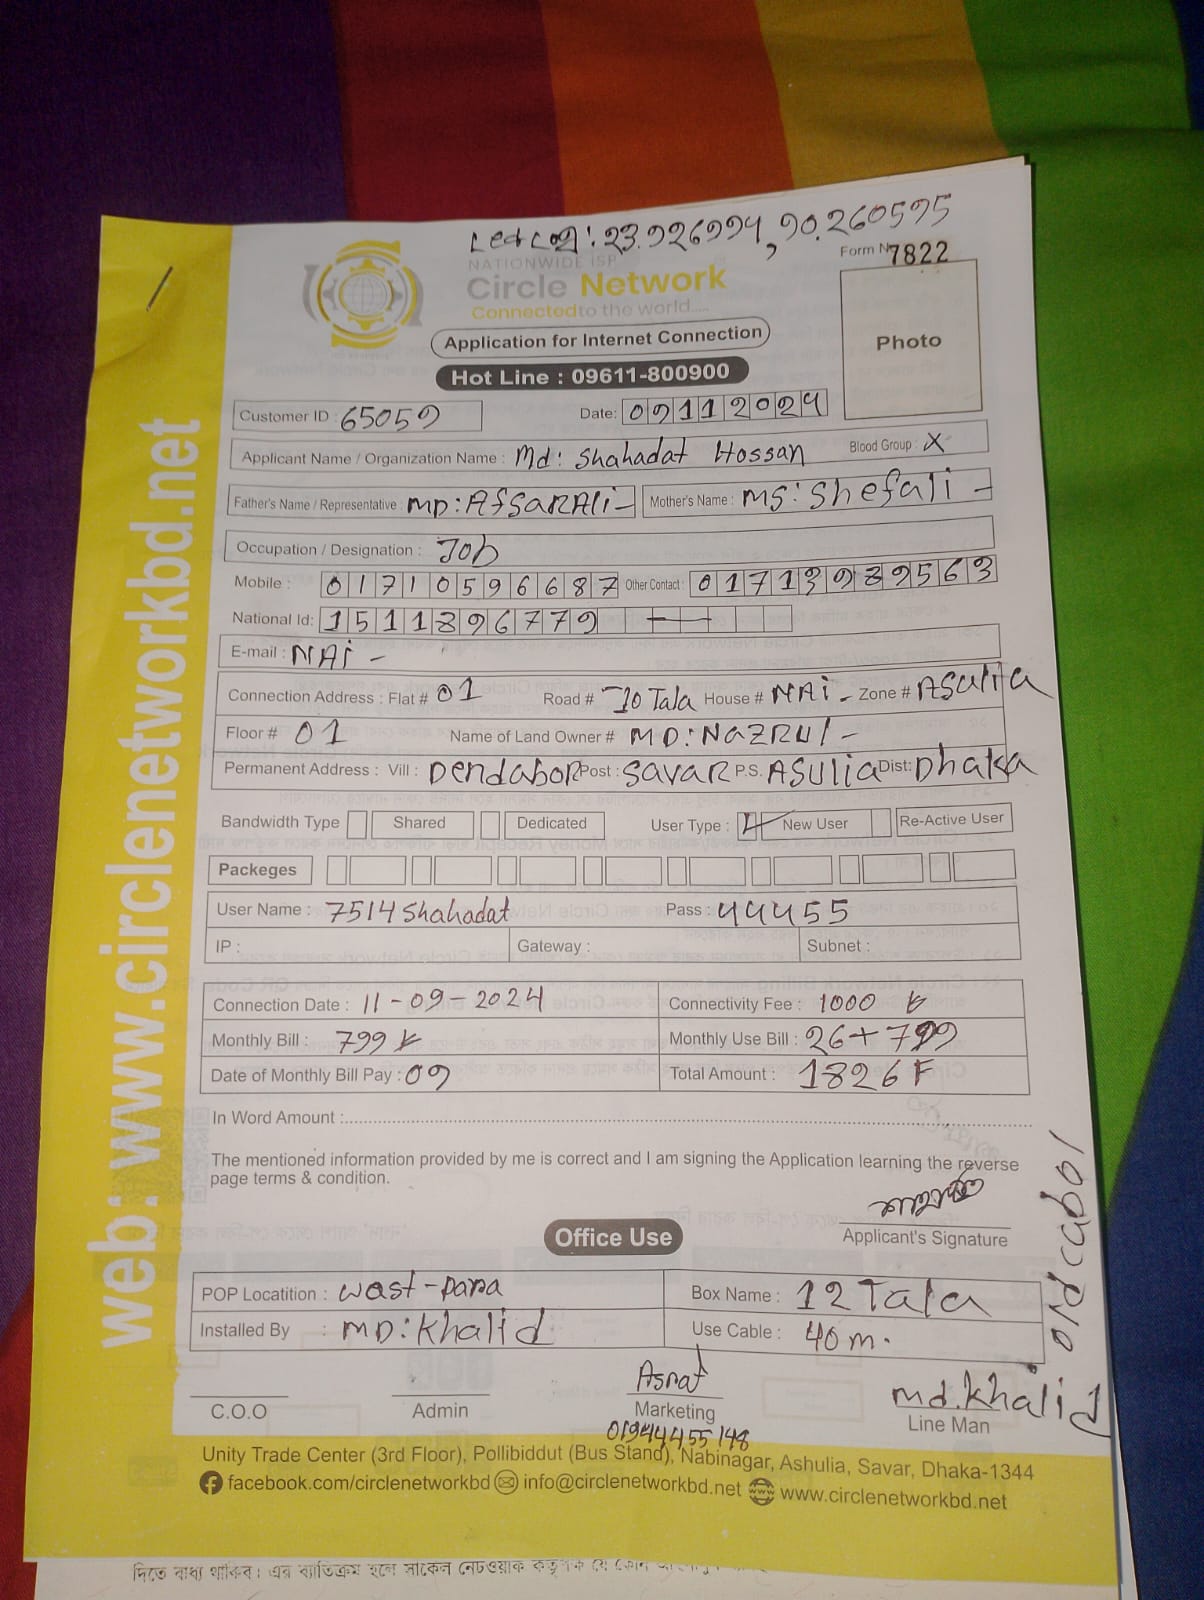 23.926994, 90.260595
NATIONWIDE ISP
Form N 7822
Circle Network
Connected to the world.....
Application for Internet Connection
Photo
Hot Line : 09611-800900
Customer ID : 65059 Date: 09112024
Applicant Name / Organization Name : Md: Shahadat Hossan Blood Group : X
Father's Name / Representative : MD: AfSARAli - Mother's Name : MS: Shefali -
Occupation / Designation : Job
Mobile : 01710596687 Other Contact : 01713989563
National Id: 1511896779
E-mail : NAi -
Connection Address : Flat # 01 Road # 10 Tala House # NAi - Zone # ASulia
Floor # 01 Name of Land Owner # MD: NAZRUl -
Permanent Address : Vill : Dendabor Post : Savar P.S. ASulia Dist: Dhaka
Bandwidth Type Shared Dedicated User Type : New User Re-Active User
Packeges
User Name : 7514Shahadat Pass : 44455
IP : Gateway : Subnet :
Connection Date : 11-09-2024 Connectivity Fee : 1000
Monthly Bill : 799 Monthly Use Bill : 26+799
Date of Monthly Bill Pay : 09 Total Amount : 1826
In Word Amount :
The mentioned information provided by me is correct and I am signing the Application learning the reverse
page terms & condition.
Applicant's Signature
Office Use
POP Locatition : wast-para Box Name : 12 Tala
Installed By : MD: Khalid Use Cable : 40 m.
old cabol
Asraf
md. Khalid
C.O.O Admin Marketing Line Man
01944455148
Unity Trade Center (3rd Floor), Pollibiddut (Bus Stand), Nabinagar, Ashulia, Savar, Dhaka-1344
facebook.com/circlenetworkbd info@circlenetworkbd.net www.circlenetworkbd.net
web: www.circlenetworkbd.net